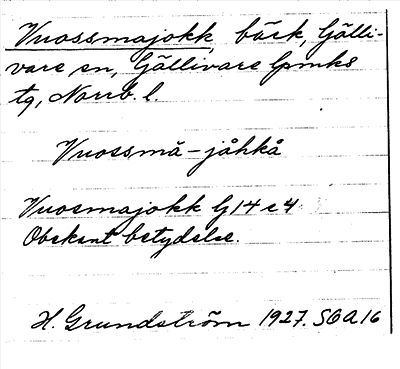 Vuossmajokk, bäck, Gälli-
vare sn, Gällivare lpmks
tg, Norrb. l.
Vuossmā-jåhkå
Vuosmajokk G14 c 4
Obekant betydelse.
H. Grundström 1927. SOA 16